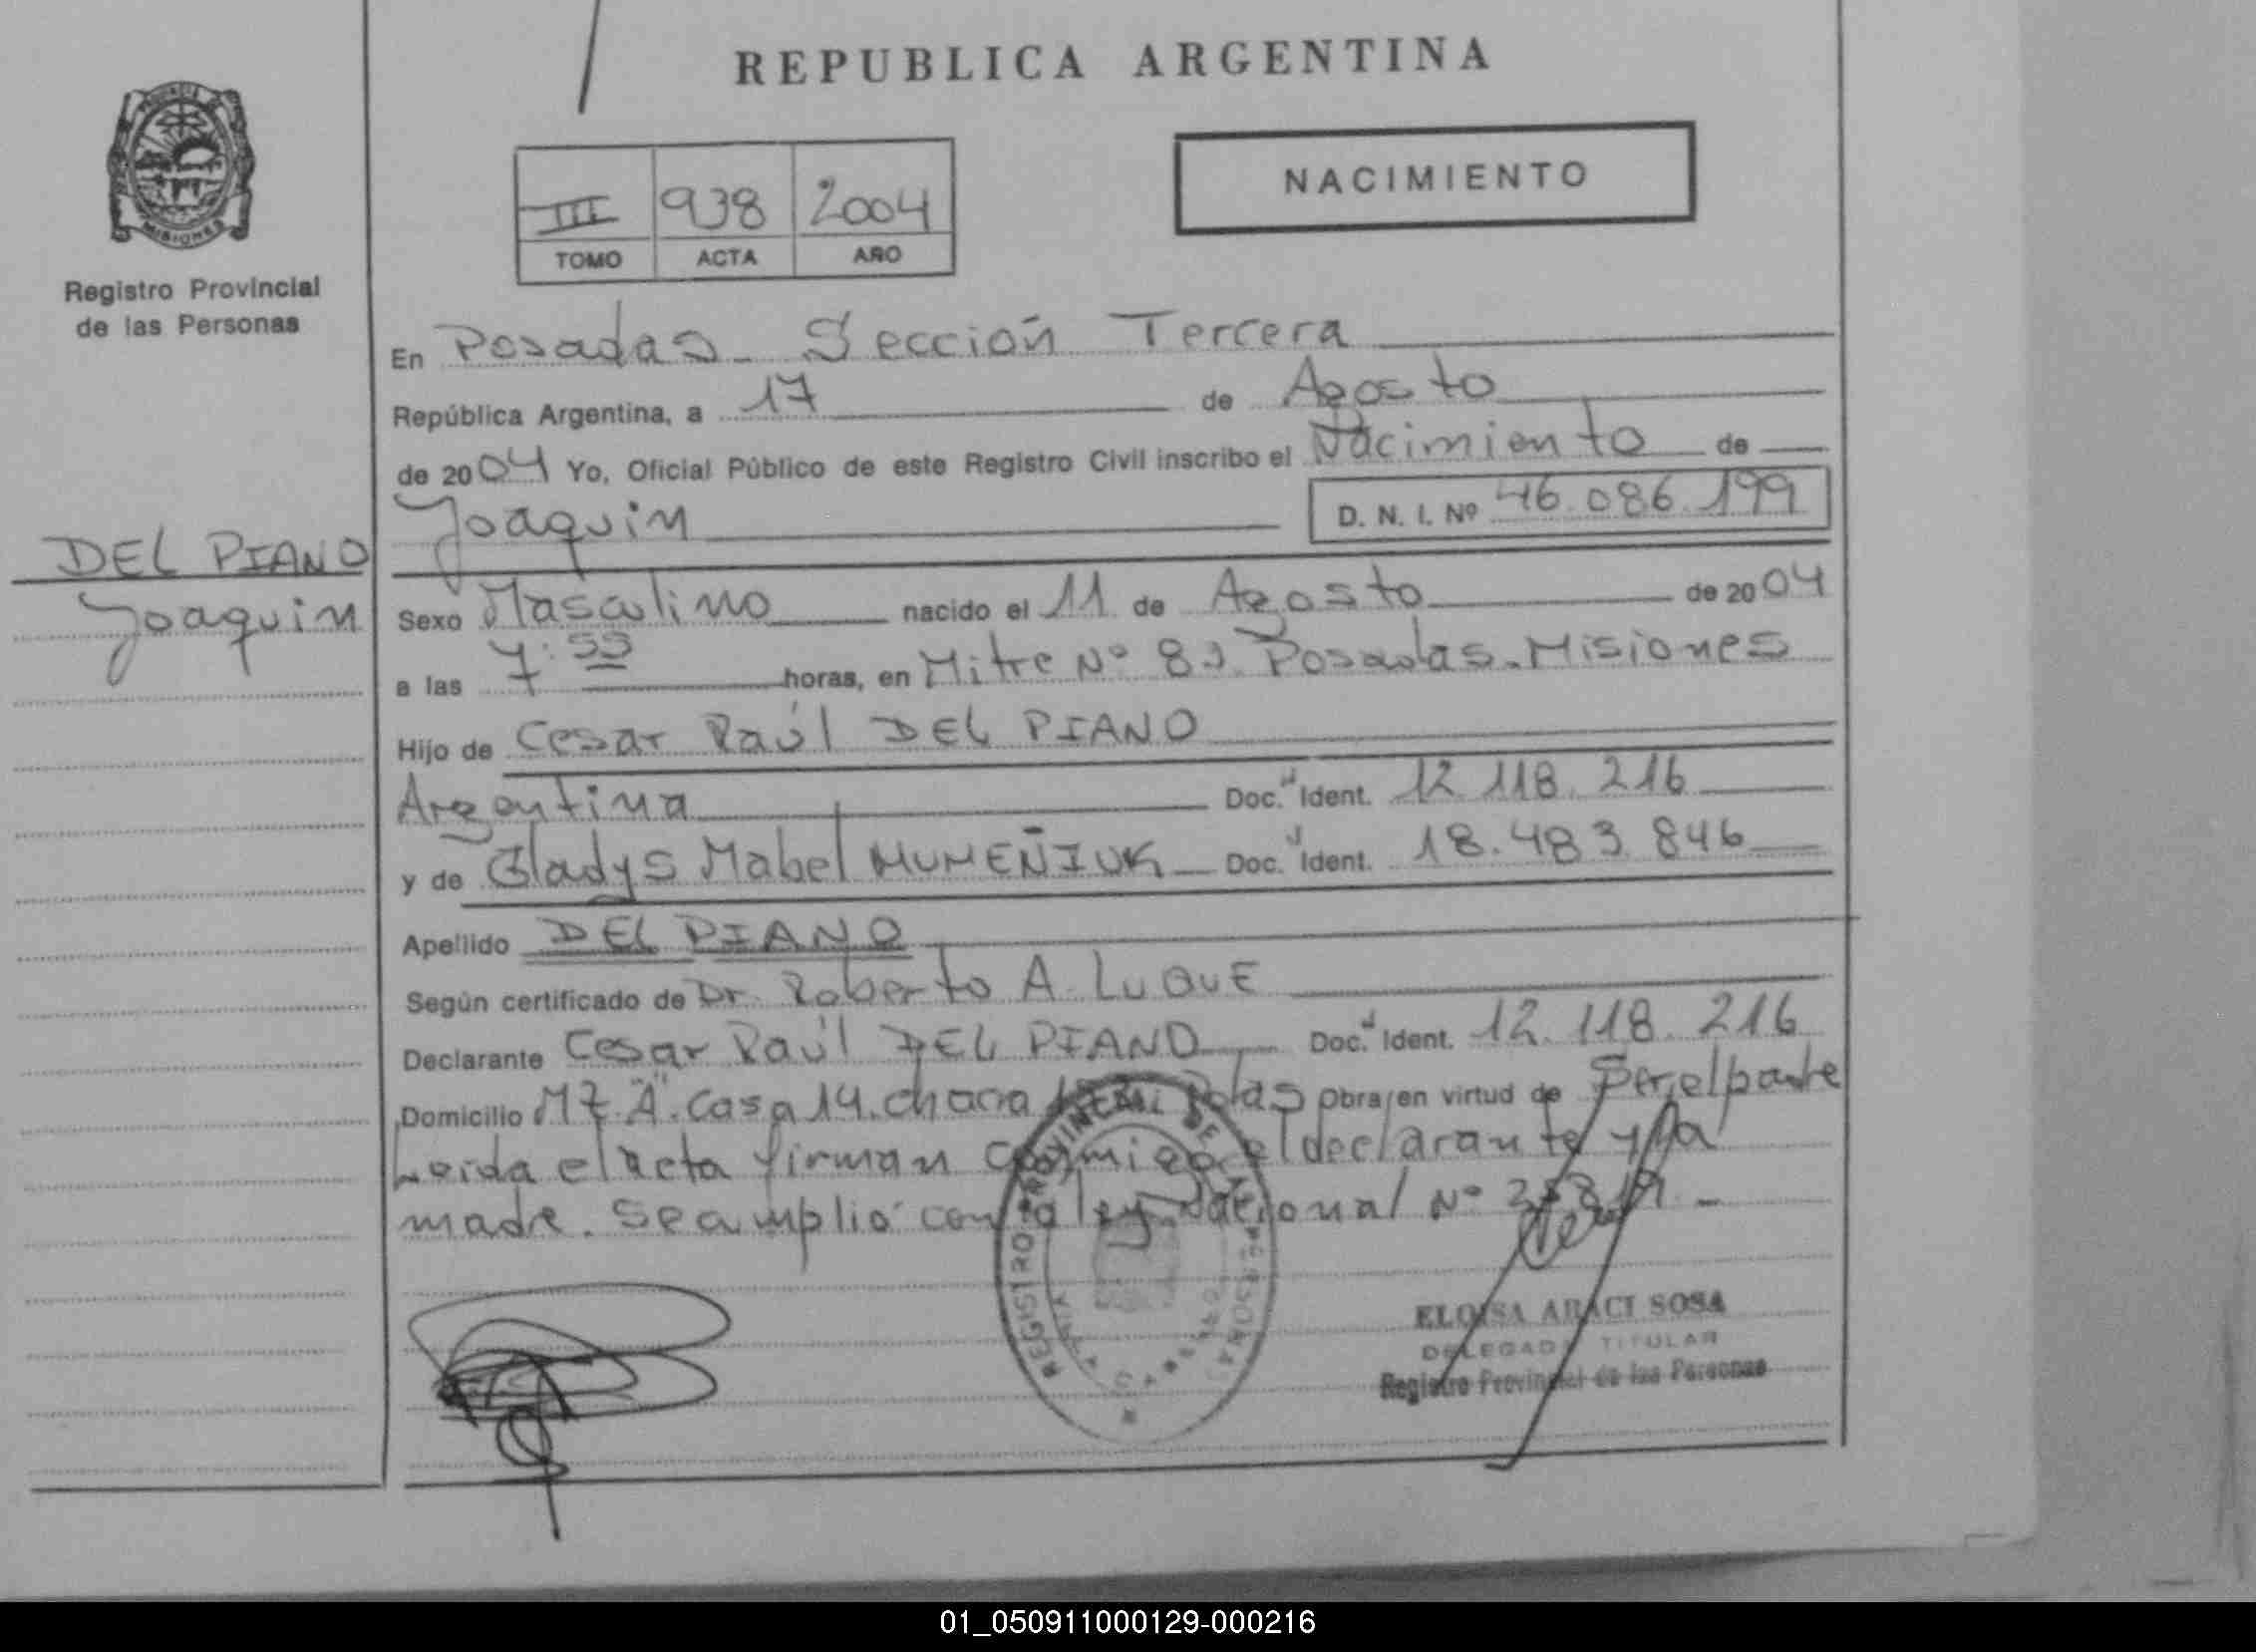 REPUBLICA ARGENTINA
PROVINCIA DE
MISIONES
Registro Provincial
de las Personas
III 938 2004
TOMO ACTA AÑO
NACIMIENTO
En Posadas - Sección Tercera
República Argentina, a 17 de Agosto
de 2004 Yo, Oficial Público de este Registro Civil inscribo el Nacimiento de
Joaquin D. N. I. Nº 46.086.199
DEL PIANO
Joaquin
Sexo Masculino nacido el 11 de Agosto de 2004
a las 7:55 horas, en Mitre Nº Posadas - Misiones
Hijo de Cesar Raúl DEL PIANO
Argentina Doc. Ident. 12.118.216
y de Gladys Mabel MUMEÑIUK Doc. Ident. 18.483.846
Apellido DEL PIANO
Según certificado de Dr. Roberto A. LUQUE
Declarante Cesar Raúl DEL PIANO Doc. Ident. 12.118.216
Domicilio MZ. "A". Casa 14. chacra Pdas Obra en virtud de Ser el padre
Leida el acta firman conmigo el declarante y la
madre. Se amplió con la ley Nacional Nº
REGISTRO PROVINCIAL DE LAS PERSONAS
ELOISA ARACI SOSA
DELEGADA TITULAR
Registro Provincial de las Personas
01_050911000129-000216